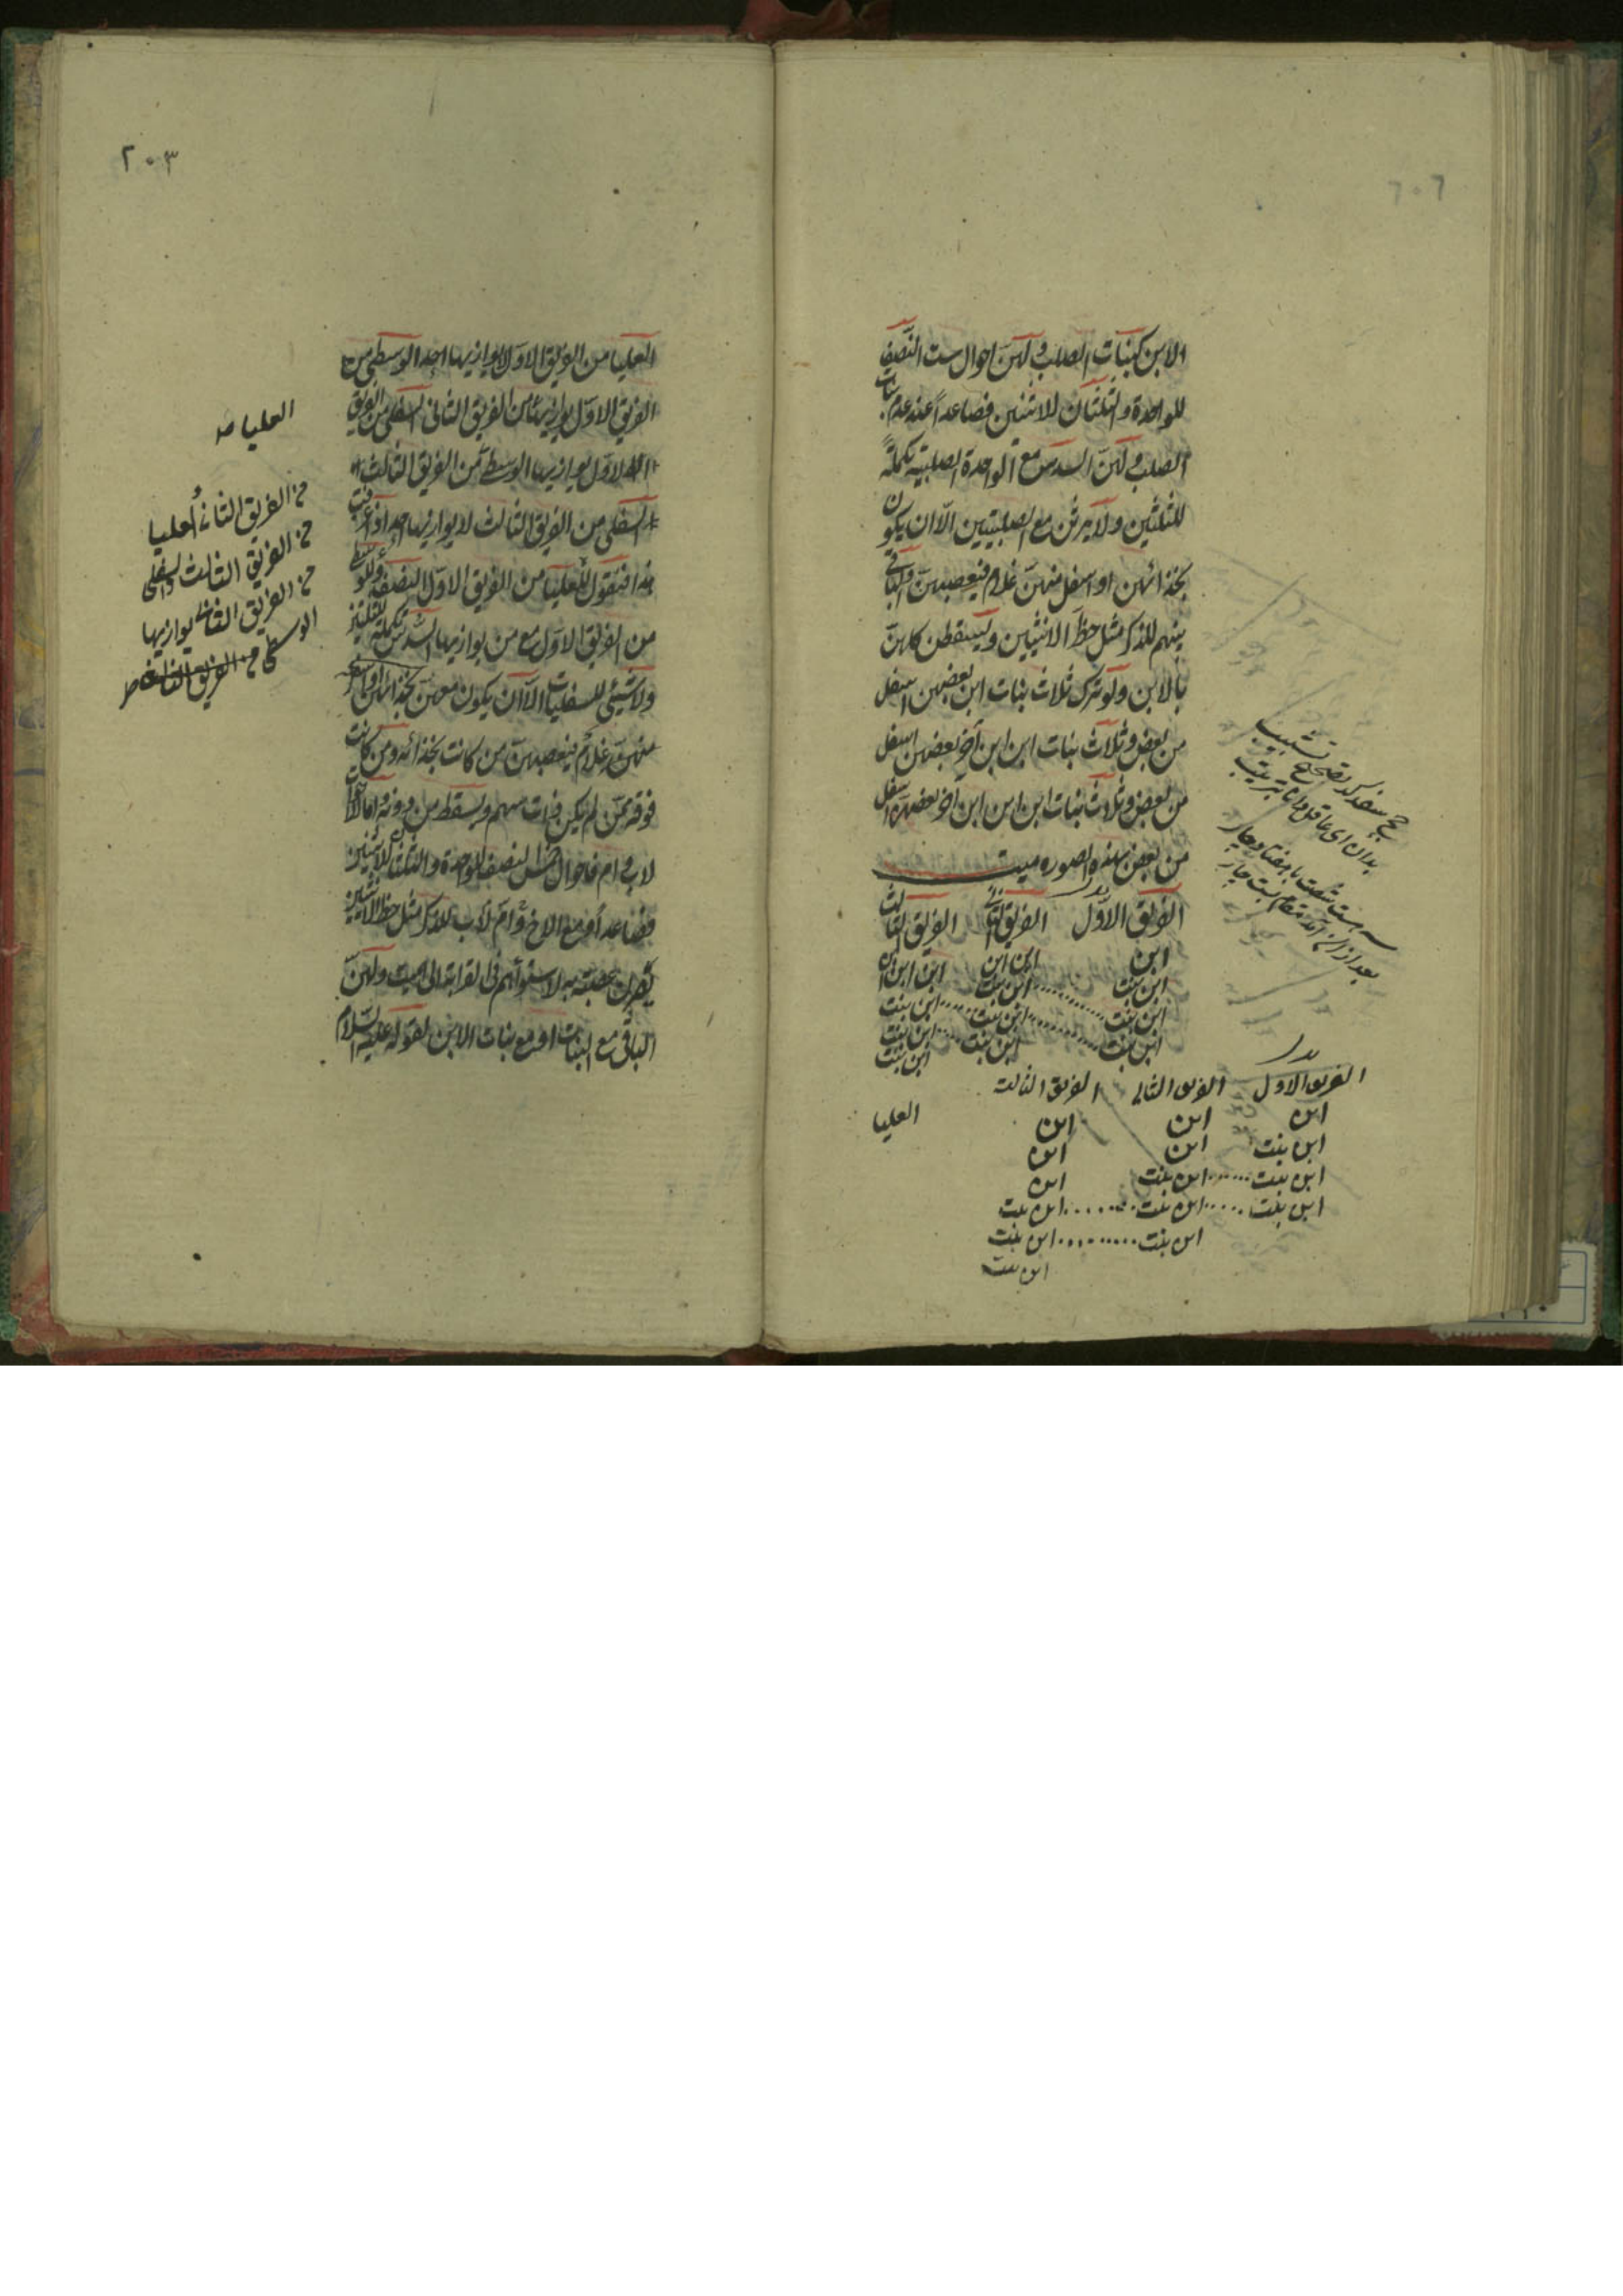 الابن كبنات الصلب و لهن احوال ست النصف
للواحدة و الثلثان للاثنين فصاعداً عند عدم بنات
الصلب و لهن السدس مع الواحدة الصلبية تكملةً
للثلثين و لا يرثن مع الصلبيتين الا ان يكون
بحذائهن او اسفل منهن غلام فيعصبهن و الباقي
بينهم للذكر مثل حظ الانثيين و يسقطن كلهن
بالابن و لو ترك ثلاث بنات ابن بعضهن اسفل
من بعض و ثلاث بنات ابن ابن آخر بعضهن اسفل
من بعض و ثلاث بنات ابن ابن ابن اخر بعضهن اسفل
من بعض بهذه الصوره ميت
الفريق الاوّل الفريق الثاني الفريق الثالث
ابن ابن ابن ابن ابن ابن
ابن بنت ابن بنت
ابن بنت ابن بنت ابن بنت
ابن بنت ابن بنت ابن بنت
ابن بنت
الفريق الاول الفريق الثاني الفريق الثالث
ابن ابن ابن
ابن بنت ابن ابن
ابن بنت ...... ابن بنت ابن
ابن بنت ..... ابن بنت ....... ابن بنت
ابن بنت ......... ابن بنت
ابن بنت
العليا
٢٠٣
العليا من الفريق الاول لا يوازيها احد الوسطى من
الفريق الاول يوازيها من الفريق الثاني السفلى من الفريق
الاول يوازيها الوسطى من الفريق الثالث
السفلى من الفريق الثالث لا يوازيها احد اذا عرفت
هذا فنقول للعليا من الفريق الاول النصف و للوسطى
من الفريق الاول مع من يوازيها السدس تكملة للثلثين
و لا شيئ للسفليات الا ان يكون معهن بحذائهن او اسفل
منهن غلام فيعصبهن من كانت بحذائه و من كانت
فوقه ممن لم يكن ذات سهم و يسقط من دونه و اما الاخوات
لاب و ام فاحوال خمس النصف للواحدة و الثلثان للاثنتين
فصاعداً و مع الاخ لاب و ام للذكر مثل حظ الانثيين
يصرن عصبة به لاستوائهم في القرابة الى الميت و لهن
الباقي مع البنات او مع بنات الابن لقوله عليه السلام
العليا
من الفريق الثاني العليا
من الفريق الثالث و السفلى
من الفريق الثاني يوازيها
الوسطى من الفريق الثالث